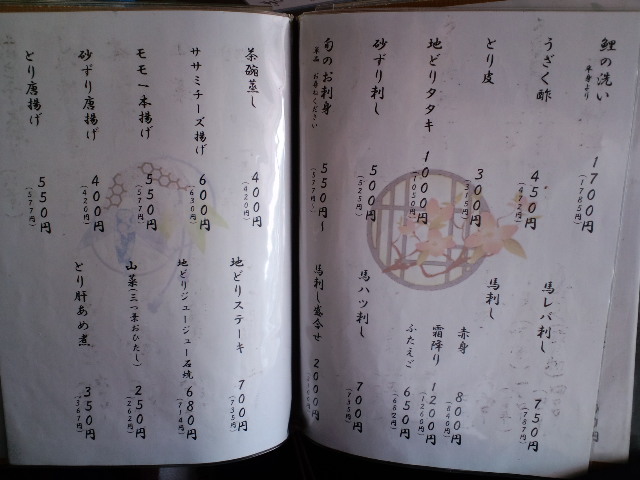 鯉の洗い
半身より
1700円
(1785円)
うざく酢
450円
(472円)
とり皮
300円
(315円)
地どりタタキ
1000円
(1050円)
砂ずり刺し
500円
(525円)
旬のお刺身
単品 お尋ねください
550円～
(577円～)
馬レバ刺し
750円
(787円)
馬刺し
赤身
800円
(840円)
霜降り
1200円
(1260円)
ふたえご
650円
(682円)
馬ハツ刺し
700円
(735円)
馬刺し盛合せ
2000円
茶碗蒸し
400円
(420円)
ササミチーズ揚げ
600円
(630円)
モモ一本揚げ
550円
(577円)
砂ずり唐揚げ
400円
(420円)
とり唐揚げ
550円
(577円)
地どりステーキ
700円
(735円)
地どりジュージュー石焼
680円
(714円)
山菜(三つ葉おひたし)
250円
(262円)
とり肝あめ煮
350円
(367円)